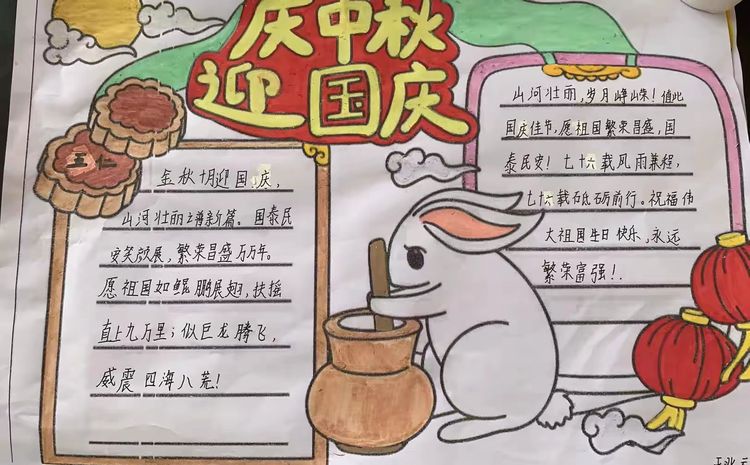 庆中秋
迎国庆
五仁
金秋十月迎国庆,
山河壮丽谱新篇。国泰民
安笑颜展,繁荣昌盛万万年。
愿祖国如鲲鹏展翅,扶摇
直上九万里;似巨龙腾飞,
威震四海八荒!
山河壮丽,岁月峥嵘!值此
国庆佳节,愿祖国繁荣昌盛,国
泰民安!七十六载风雨兼程,
七十六载砥砺前行。祝福伟
大祖国生日快乐,永远
繁荣富强!